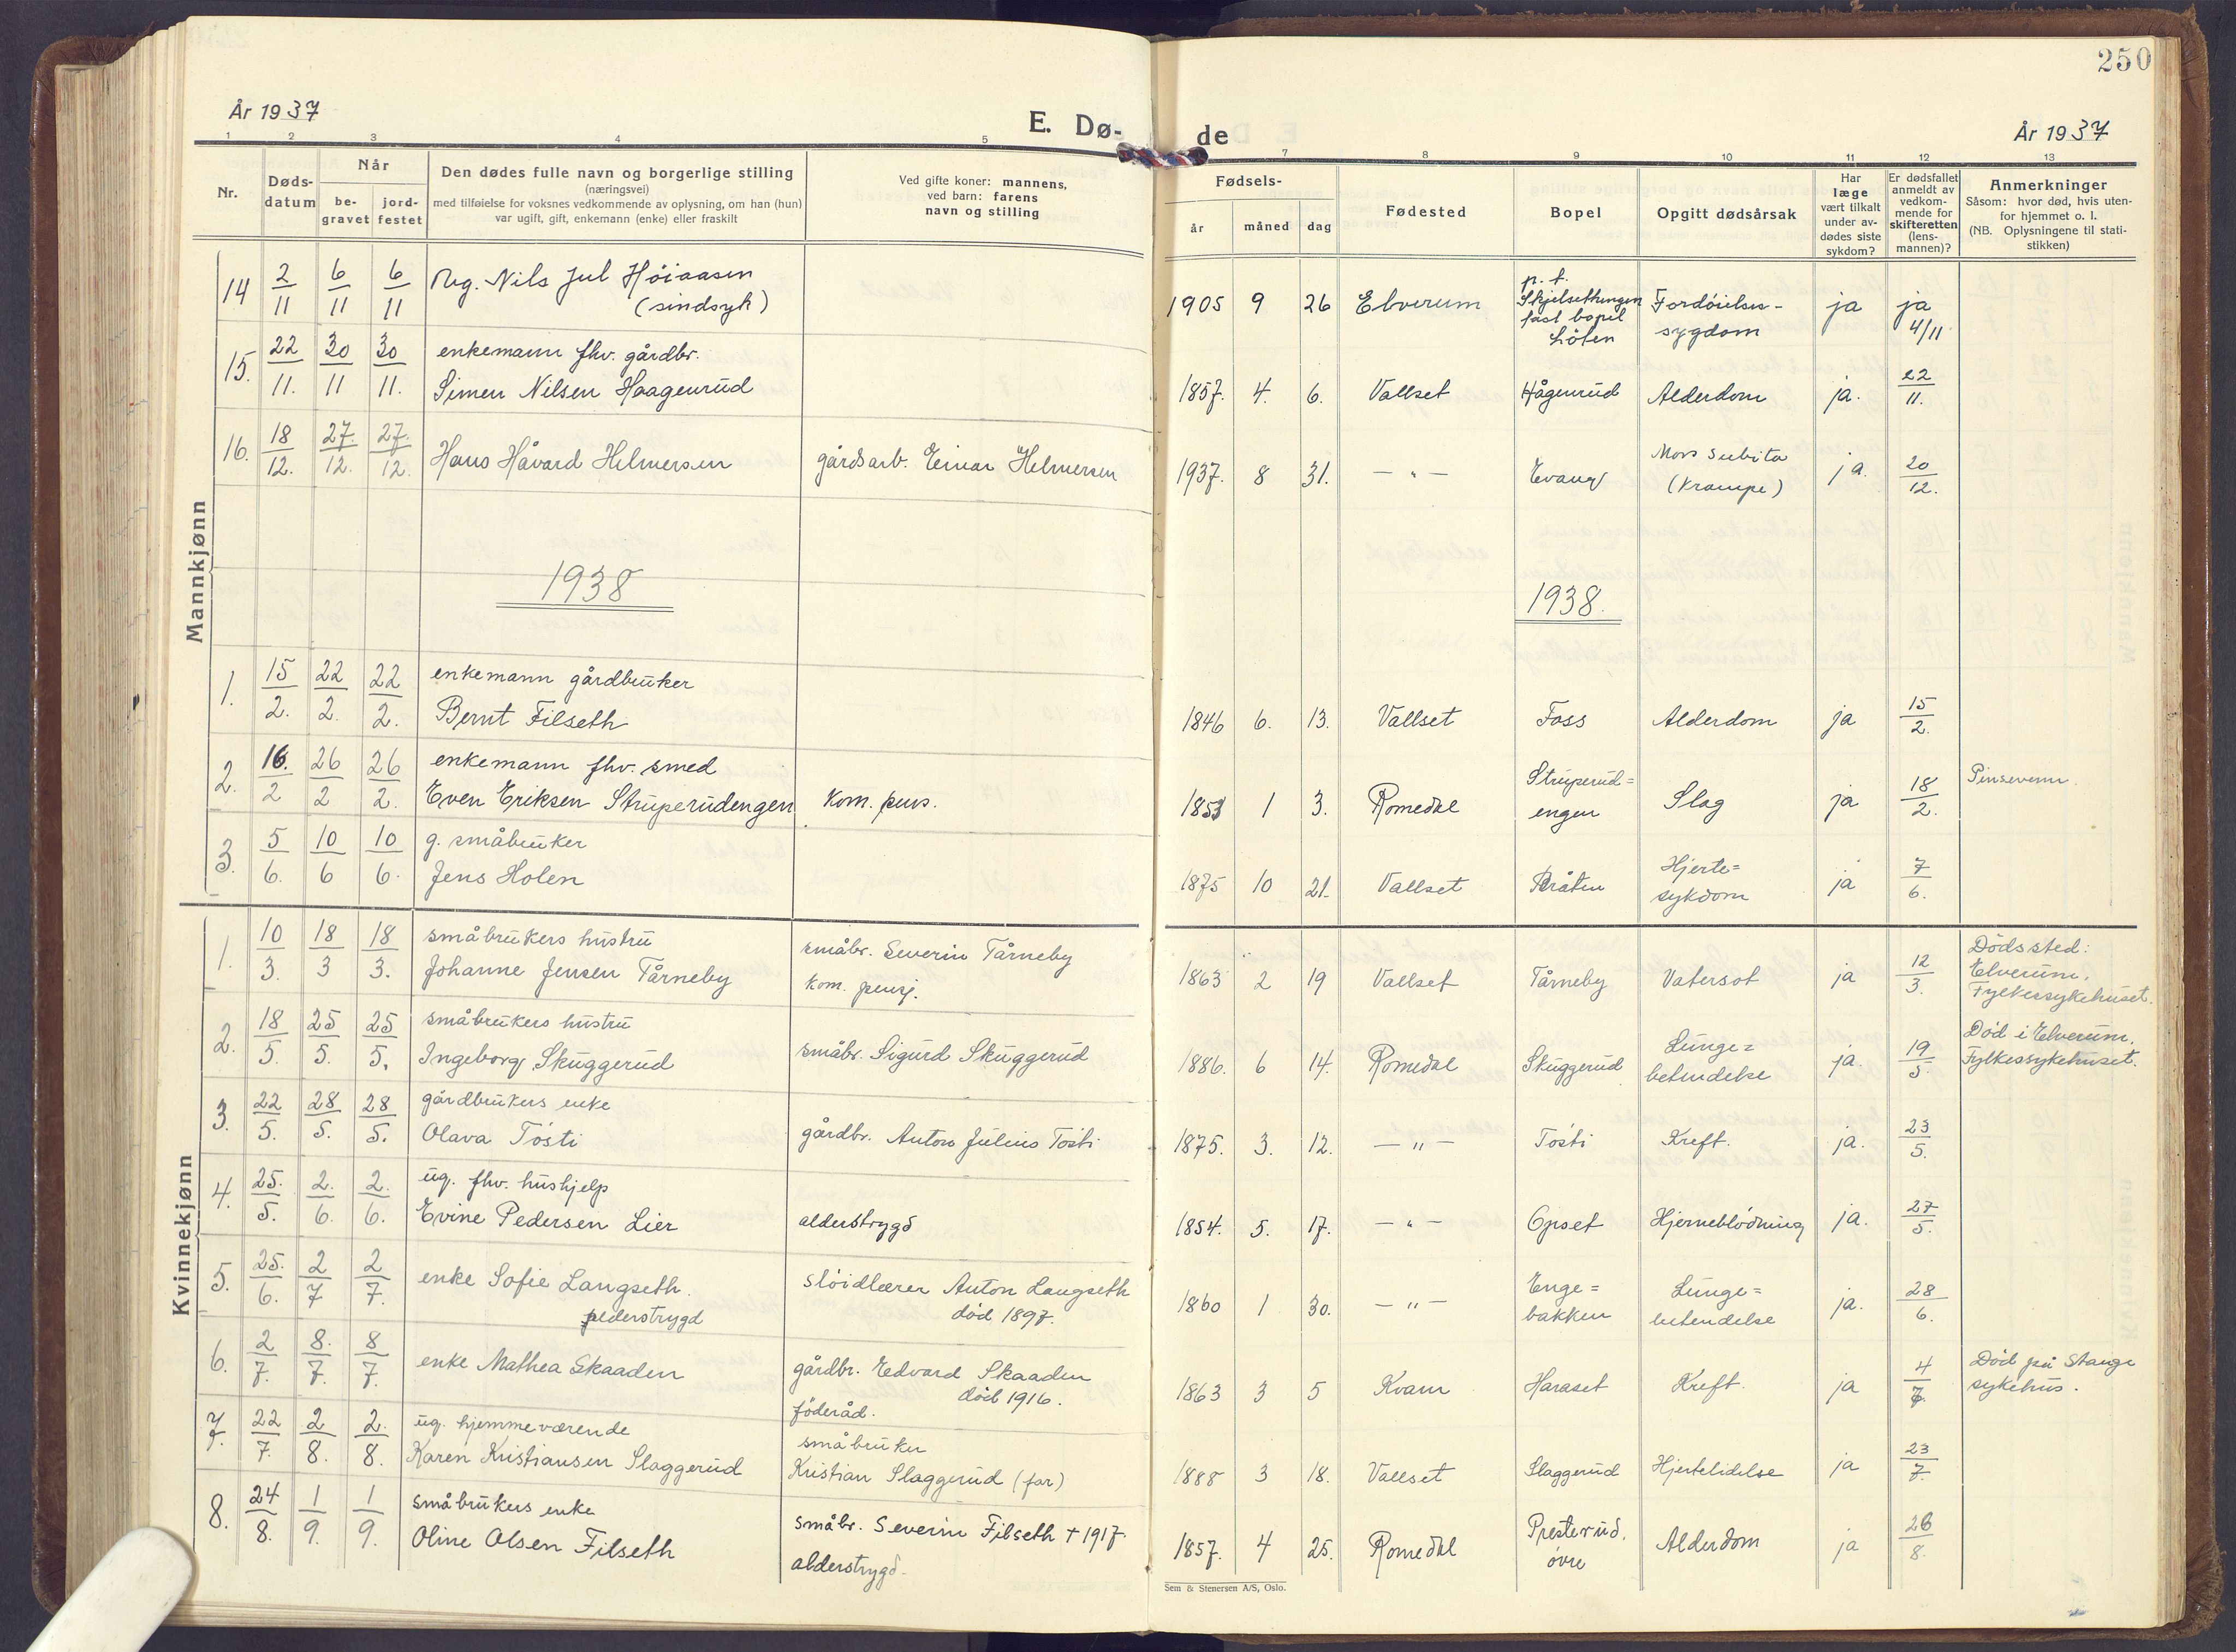 250
År 1937
E. Dø-
de
År 1937
1 2 3 4 5 7 8 9 10 11 12 13
Nr.
Døds-
datum
Når
be-
gravet
jord-
festet
Den dødes fulle navn og borgerlige stilling
(næringsvei)
med tilføielse for voksnes vedkommende av oplysning, om han (hun)
var ugift, gift, enkemann (enke) eller fraskilt
Ved gifte koner: mannens,
ved barn: farens
navn og stilling
Fødsels-
år måned dag
Fødested
Bopel
Opgitt dødsårsak
Har
læge
vært tilkalt
under av-
dødes siste
sykdom?
Er dødsfallet
anmeldt av
vedkom-
mende for
skifteretten
(lens-
mannen)?
Anmerkninger
Såsom: hvor død, hvis uten-
for hjemmet o. l.
(NB. Oplysningene til stati-
stikken)
Mannkjønn
14 2/11 6/11 6/11 Ug. Nils Jul Höiaasen
(sindsyk)
1905 9 26 Elverum
p. t.
Skjelsethengen
fast bopel
Löten
Fordöielses-
sygdom
ja ja
4/11
15. 22/11. 30/11 30/11. enkemann fhv. gårdbr.
Simen Nilsen Haagenrud
1857. 4. 6. Vallset Hågenrud Alderdom ja. 22/11.
16. 18/12. 27./12. 27./12. Hans Håvard Helmersen gårdsarb. Einar Helmersen
1937. 8 31. — " — Evang
Mors subita
(Krampe)
ja. 20/12.
1938
1938.
1. 15/2. 22/2. 22/2. enkemann gårdbruker
Bernt Filseth
1846 6. 13. Vallset Foss Alderdom ja 15/2.
2. 16./2 26/2 26/2. enkemann fhv. smed
Even Eriksen Struperudengen kom. pens.
1853 1 3. Romedal
Struperud=
engen
Slag ja 18/2. Pinsevenn.
3. 5/6. 10/6 10/6. g. småbruker
Jens Holen
1875 10 21. Vallset Bråten
Hjerte=
sykdom
ja 7/6.
Kvinnekjønn
1. 10/3. 18/3 18/3. småbrukers hustru
Johanne Jensen Tårneby
småbr. Severin Tårneby
kom. pensj.
1863 2 19 Vallset Tårneby Vatersot ja 12/3.
Dödssted:
Elverum.
Fylkessykehuset.
2. 18/5. 25/5. 25/5. småbrukers hustru
Ingeborg Skuggerud småbr. Sigurd Skuggerud
1886. 6 14. Romedal Skuggerud
Lunge=
betendelse
ja. 19/5
Död i Elverum.
Fylkessykehuset.
3. 22/5. 28/5. 28/5. gårdbrukers enke
Olava Tösti gårdbr. Anton Julius Tösti
1875. 3. 12. — " — Tösti Kreft. ja. 23/5.
4. 25./5. 2./6. 2./6. ug. fhv. hushjelp
Evine Pedersen Lier alderstrygd
1854. 5. 17. — " — Opset Hjerneblödning ja. 27/5.
5. 25./6. 2/7 2/7. enke Sofie Langseth.
alderstrygd
slöidlærer Anton Langseth
död 1897.
1860 1 30. — " —
Enge=
bakken
Lunge=
betendelse
ja. 28/6.
6. 2/7. 8./7. 8/7. enke Mathea Skaaden
gårdbr. Edvard Skaaden
död 1916.
föderåd.
1863 3 5 Kvam Haraset Kreft. ja 4/7.
Död på Stange
sykehus.
7. 22/7. 2/8. 2./8. ug. hjemmeværende
Karen Kristiansen Slaggerud
småbruker
Kristian Slaggerud (far)
1888 3 18. Vallset Slaggerud Hjertelidelse ja 23/7.
8. 24/8. 1/9. 1/9. småbrukers enke
Oline Olsen Filseth
småbr. Severin Filseth † 1917.
alderstrygd.
1857. 4 25. Romedal
Presterud.
övre
Alderdom ja 26/8.
Sem & Stenersen A/S, Oslo.